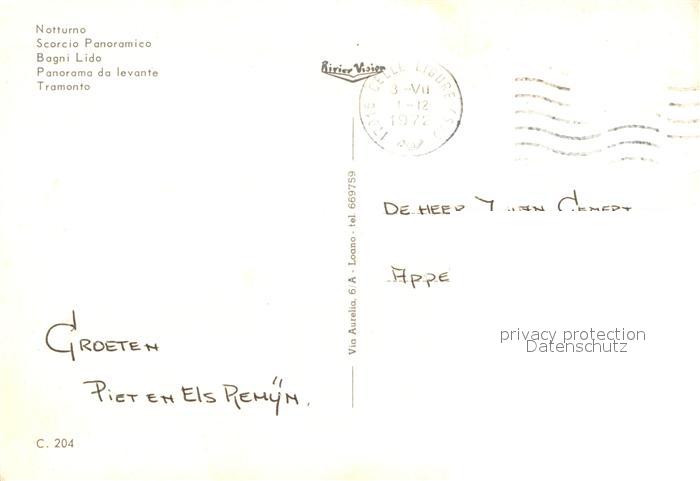 Notturno
Scorcio Panoramico
Bagni Lido
Panorama da levante
Tramonto
Rivier Vision
17015 CELLE LIGURE (SV)
3-VII
1-12
1972
Via Aurelia, 6/A - Loano - tel. 669759
DE HEER
APPE
privacy protection
Datenschutz
GROETEN
PIET EN ELS REMIJN.
C. 204